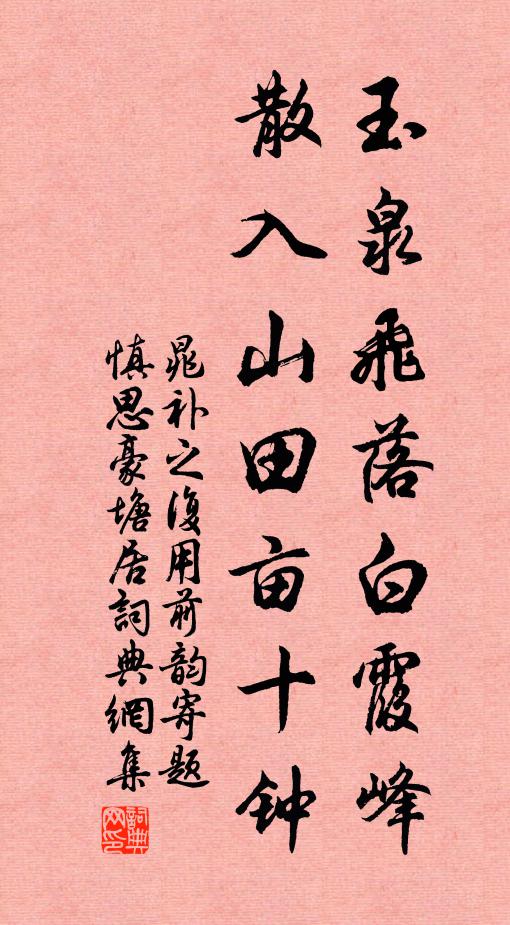 玉泉飛落白霞峰
散入山田亩十钟
晁补之復用前韵寄题
慎思豪塘居詞典網集
詞典
网印